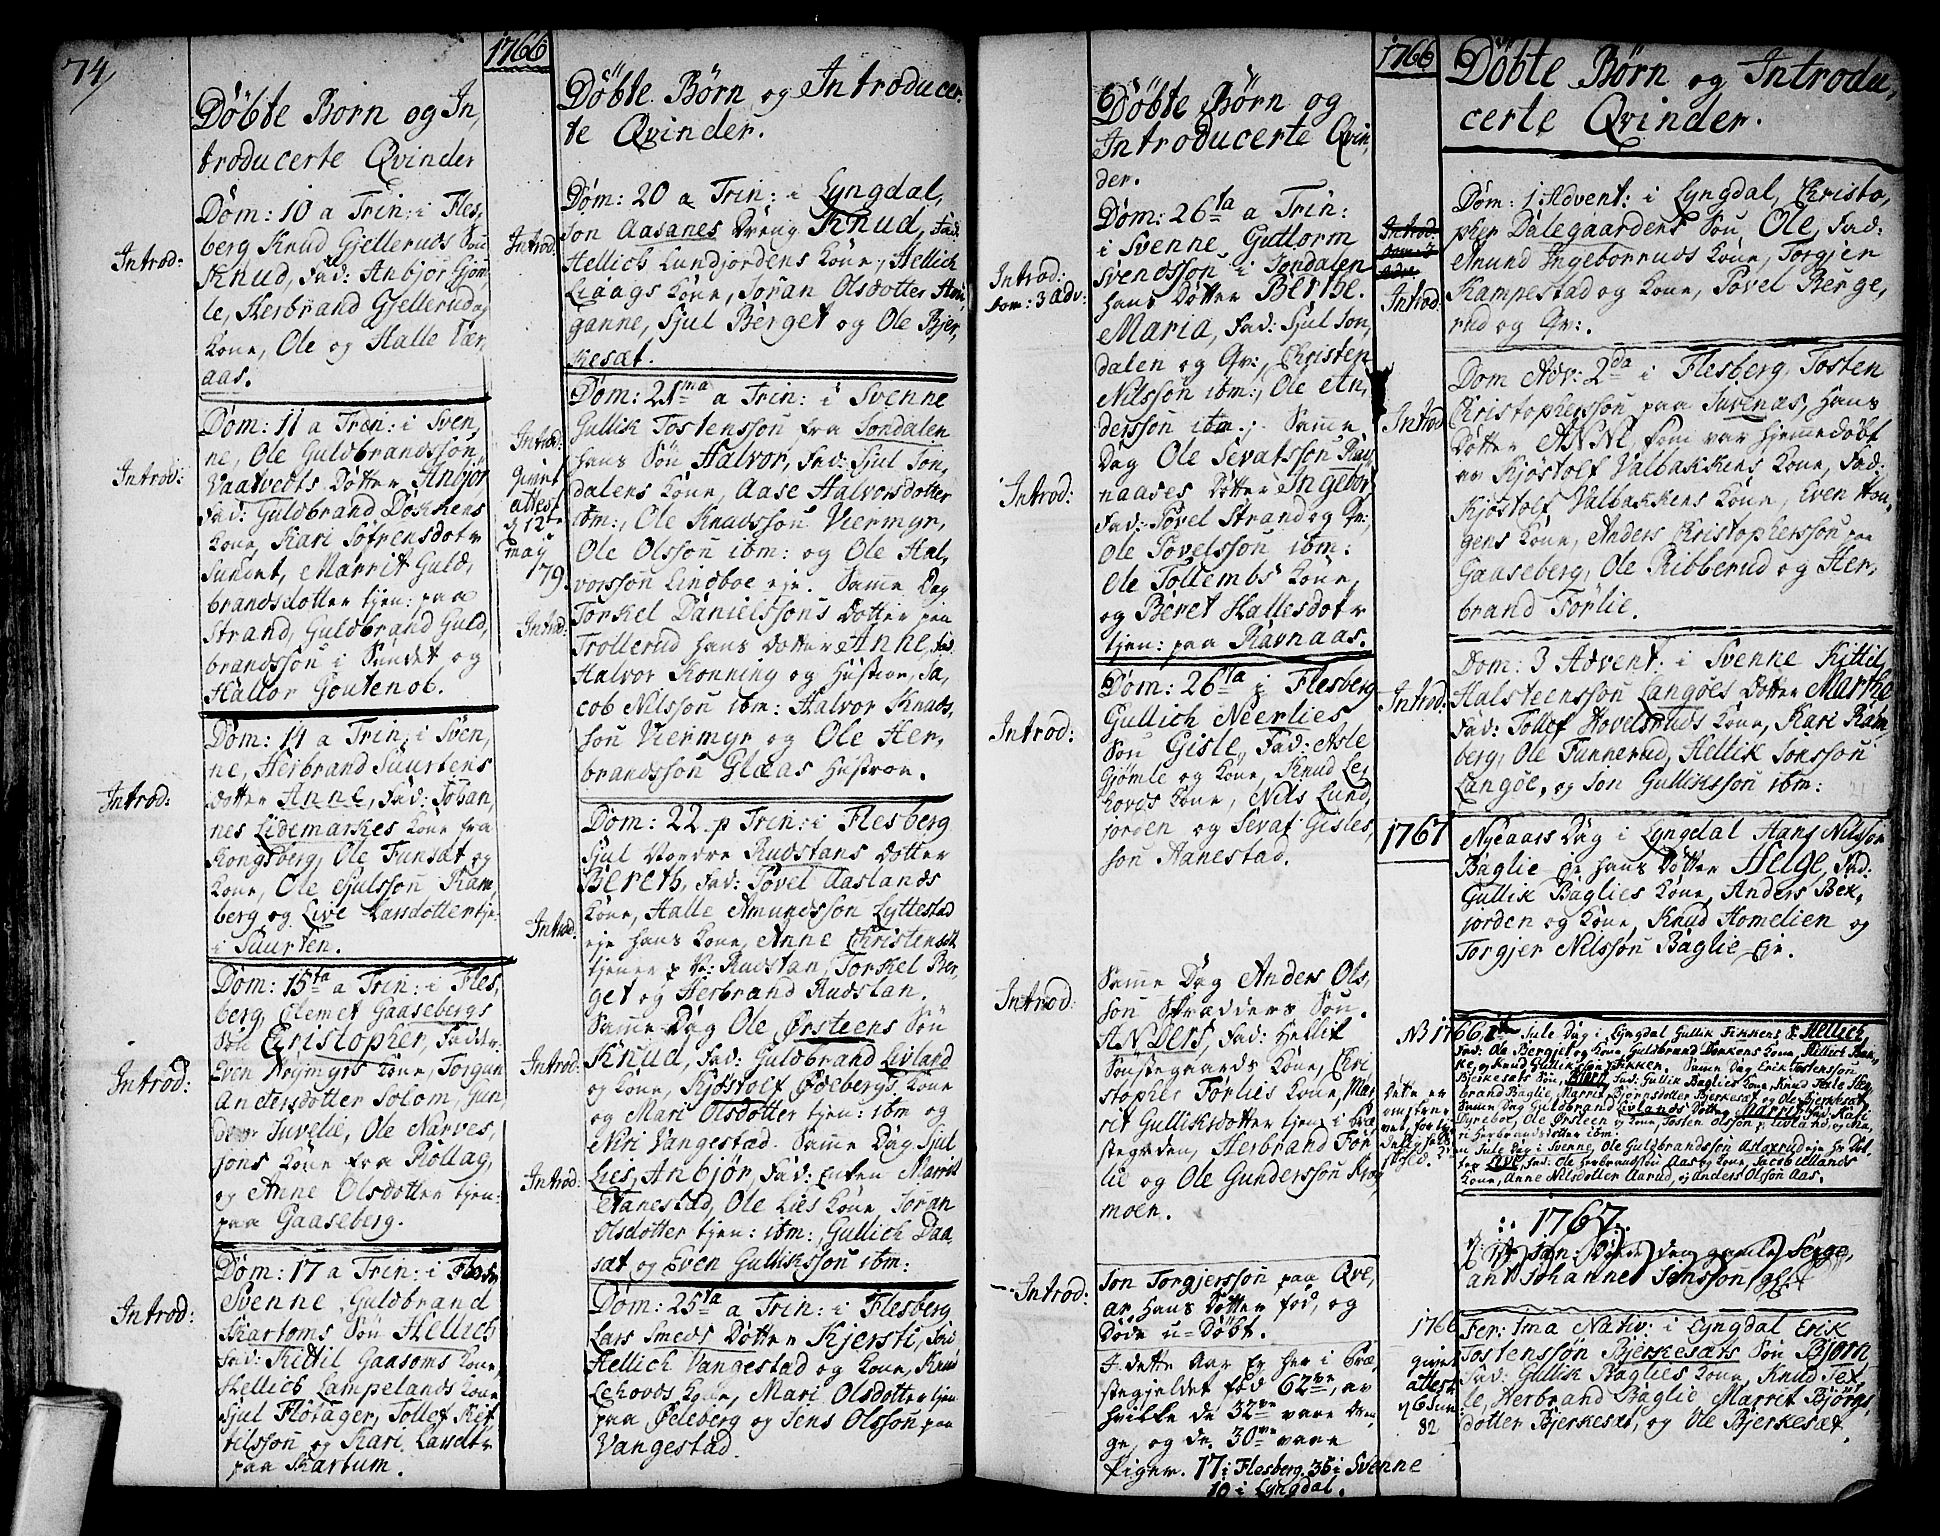 74/
1766
Döbte Born og In,
troducerte Qvinder
Introd:
Dom: 10 a Trin: i Fles,
berg Knud Gjelleruds Søn
Knud, Fad: Anbjor Gjøm,
le, Herbrand Gjellerud og
Kone, Ole og Halle Vær,
aas.
Introd:
Dom: 11 a Trin: i Sven,
ne, Ole Guldbrandssøn,
Vaatvedts Dotter Anbjor
Fad: Guldbrand Dokkens
Kone, Kari Sofrensdotr
Sundet, Marrit Guld,
brandsdotter tjen: paa
Strand, Guldbrand Guld,
brandssøn i Sundet og
Halvor Goutenob.
Introd:
Dom: 14 a Trin: i Sven,
ne, Herbrand Suurtens
dotter Anne, Fad: Johan,
nes Lidemarkes Kone fra
Kongsberg, Ole Funsat og
Kone, Ole Sjulssøn Ram
berg og Live Larsdotter tje:
i Suurten.
Introd:
Dom: 15ta a Trin: i Fles,
berg, Clemet Gaasebergs
Søn Christopher, Fadder:
Even Nøymyrs Kone, Torgun
Andersdotter Solom, Gun,
der Juvelie, Ole Narves,
jons Kone fra Rollag,
og Anne Olsdotter tjen:
paa Gaaseberg.
Introd:
Dom: 17 a Trin: i
Svenne Guldbrand
Skartoms Søn Hellich
Fad: Kittil Gaasoms Kone,
Hellich Lampelands Kone
Sjul Flotager, Tollef Kit,
tilssøn og Kari Larsdotr
paa Skartum.
Döbte Börn og Introducer,
te Qvinder.
Introd
Dom: 20 a Trin: i Lyngdal,
Jon Aasanes Dreng Knud, Fad:
Hellich Lundjordens Kone, Hellich
Liaags Kone, Joran Olsdotter
ganne, Sjul Berget og Ole Bjer,
kesat.
Introd:
givet
attest
d 12te
may
79.
Dom: 21ma a Trin: i Svenne
Gullik Tostenssøn fra Jondalen
hans Søn Halvor, Fad: Sjul Jon,
dalens Kone, Aase Halvorsdotter
ibm:, Ole Knudssøn Viermyr,
Ole Olssøn ibm: og Ole Hal,
vorssøn Lindboe eje. Samme Dag
Introd:
Torkel Danielssøns dotter paa
Trollerud hans dotter Anne, Fad:
Halvor Konning og Hustroe, Ja,
cob Nilssøn ibm: Halvor Knuds,
søn Viermyr og Ole Her,
brandssøn Glaas Hustroe.
Dom: 22 p Trin: i Flesberg
Sjul Nordre Rudstans dotter
Bereth, Fad: Povel Aaslands
Introd.
Kone, Halle Amundssøn Lyttestad
eje hans Kone, Anne Christensdtr
tjener p N: Rudstan, Torkel Ber,
get og Herbrand Rudstan.
Samme Dag Ole Ørsteens Søn
Introd:
Knud, Fad: Guldbrand Livland
og Kone, Kjøstolf Ødebergs Kone
og Mari Olsdotter tjen: ibm og
Niri Vangestad. Samme Dag Sjul
Introd:
Lies, Anbjør, Fad: Enken Marrit
Aanestad, Ole Lies Kone, Joran
Olsdotter tjen: ibm:, Gullich Daa,
sat og Even Gullikssøn ibm:
Dom: 25ta a Trin: i Flesberg
Lars Smeds Dotter Kjersti, Fad
Hellich Vangestad og Kone, Knud
Lehovds Kone, Mari Olsdotter tjen
paa Ødeberg og Jens Olssøn paa
Vangestad.
1766
Döbte Börn og
Introducerte Qvin,
der.
Introd:
Dom: 3 Adv:
Dom: 26ta a Trin:
i Svenne Guttorm
Svendssøn i Jondalen
hans Dotter Berthe
Maria, Fad: Sjul Jon,
dalen og Qv:, Christen
Nilssøn ibm:, Ole An,
derssøn ibm:. Samme
Introd:
Dag Ole Sevatssøn Rav,
naases dotter Ingebor
Fad: Povel Strand og Qv:,
Ole Povelssøn ibm:
Ole Tollembs Kone,
og Beret Hallesdotr
tjen: paa Ravnaas.
Introd:
Dom: 26ta p Flesberg
Gullich Neerlies
Søn Gisle, Fad: Asle
Gjømle og Kone, Knud Le,
hovds Kone, Nils Lund,
jorden og Sevat Gisles,
søn Aanestad.
Introd:
Samme Dag Anders Ols,
søn Skrædders Søn.
Anders, Fad: Hellik
Sønstegaards Kone, Chri,
stopher Førlies Kone, Mar,
rit Gulliksdotter tjen: i Præ,
stegarden, Herbrand Før
lie og Ole Gunderssøn Krog
moen.
Introd:
Jon Torgjerssøn paa Qve,
ar, hans Dotter fød, og
Døde u-Døbt.
I dette Aar Er her i Præ,
stegjeldet fød 62ve, av
hvilke de 32ve vare Dren,
ge, og de 30ve vare
Piger. 17 i Flesberg. 35 i Svenne
10 i Lyngdal.
1766
Döbte Börn og Introdu,
certe Qvinder.
Introd
Dom: 1 Advent: i Lyngdal, Christo,
pher Dalegaardens Søn Ole, Fad:
Amund Ingeborruds Kone, Torgjer
Kampestad og Kone, Povel Berge,
rud og Qv:.
Introd
Dom Adv: 2da i Flesberg, Tosten
Christopherssøn paa Juvenæs, hans
Dotter Anne, som var hjemmedøbt
av Kjøstolf Valbakkens Kone, Fad:
Kjøstolf Valbakkens Kone, Even Hou,
gens Kone, Anders Christopherssøn paa
Gaaseberg, Ole Ribberud og Her,
brand Førlie.
Introd:
Dom: 3 Advent. i Svenne Kittil
Halsteenssøn Langøes Dotter Marthe
Fad: Tollef Hovelsruds Kone, Kari Ram
berg, Ole Tunnerud, Hellik Jonssøn
Langøe, og Jon Gullikssøn ibm:
1767
Nyeaars Dag i Lyngdal Hans Nilssøn
Baglie Eje hans Dotter Helge, Fad:
Gullik Baglies Kone, Anders Bek,
jorden og Kone, Knud Homelien og
Torgjer Nilssøn Baglie Eje.
NB 1766
Jule Dag i Lyngdal Gullik Fikkens S: Hellich
Fad: Ole Berget og Kone, Guldbrand Dokkens Kone, Hellich Bak,
ke, og Knud Gullikssøn Fikken. Samme Dag Erik Tostenssøn
Bjerkesets Søn, Fad: Gullik Baglies Kone, Knud Texle, Her,
brand Baglie, Marrit Bjørnsdotter Bjerkesæt og Ole Bjerkesæt,
Samme Dag Guldbrand Livlands Dotter Marrit, Fad: Kari
Dyreboe, Ole Ørsteen og Kone, Tosten Olssøn p Livland, og Ma,
ri Herbrandsdotter ibm:
Jule Dag i Svenne, Ole Guldbrandssøn Aslaxrud eje hs Dot,
ter Live, Fad: Ole Herbrandssøn Aas og Kone, Jacob Ullands
Kone, Anne Nilsdotter Aarud, og Anders Olssøn Aas.
1767.
Jan: Døde den gamle Serge,
ant Johannes Jonssøn
1766
givet
attest
d 6 Jun:
82
Fer: 1ma Nativ: i Lyngdal Erik
Tostenssøn Bjerkesæts Søn Bjørn
Fad: Gullik Baglies Kone, Knud Tex,
le, Herbrand Baglie, Marrit Bjørns,
dotter Bjerkesæt, og Ole Bjerkesæt.